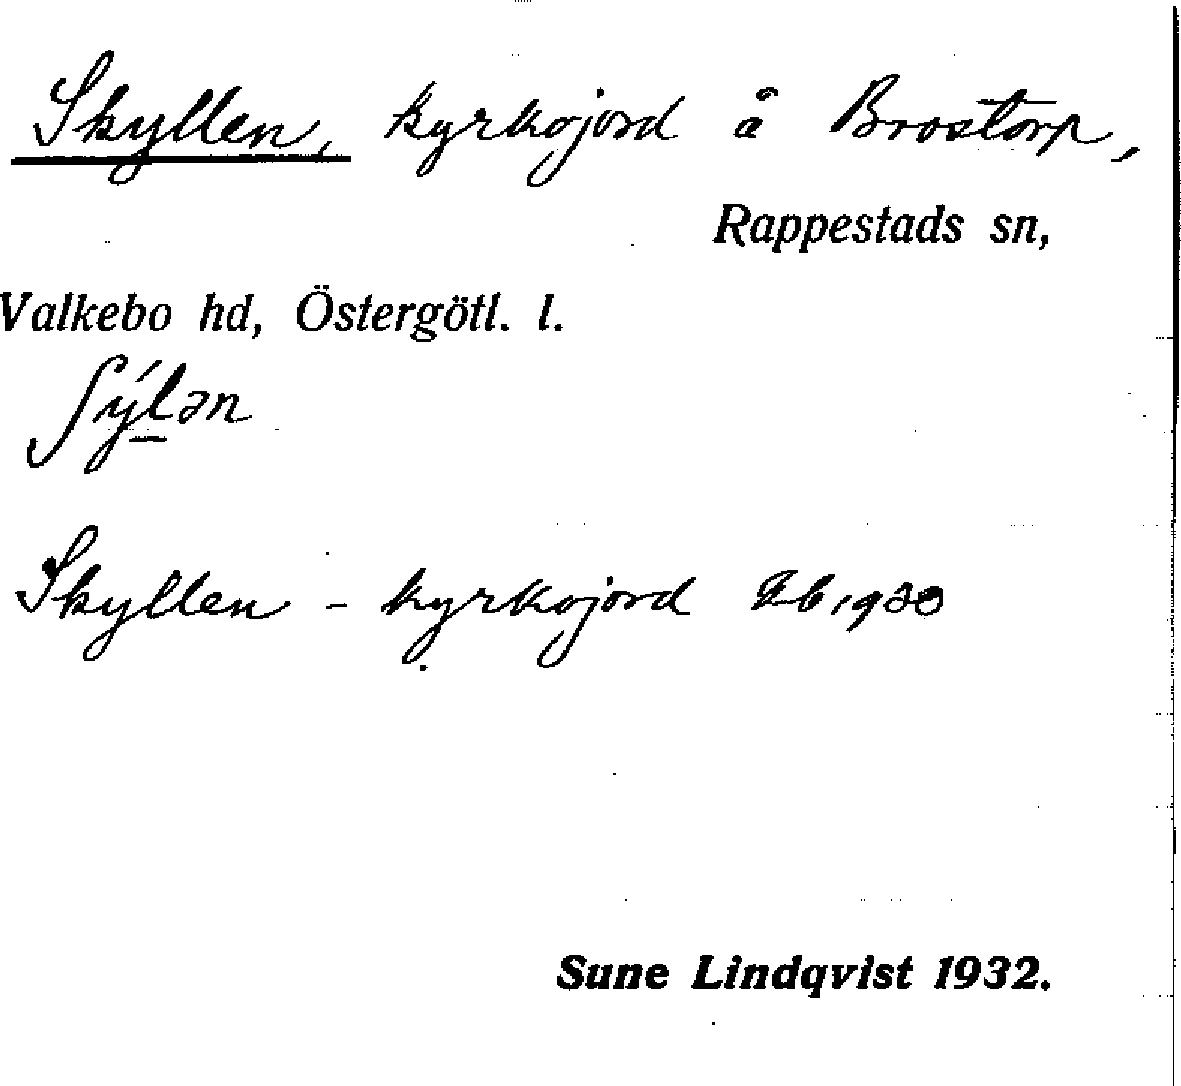 Skyllen, kyrkojord å Brostorp,
Rappestads sn,
Valkebo hd, Östergötl. l.
ʃýlən
Skyllen - kyrkojord
Sune Lindqvist 1932.